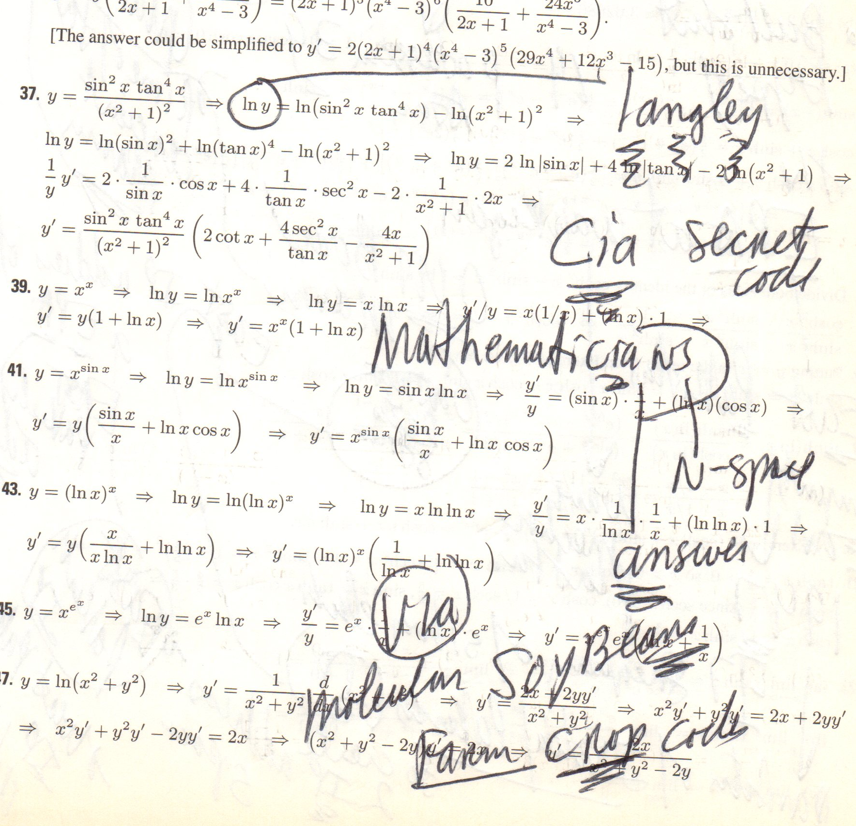 (2x + 1 x⁴ − 3) = (2x + 1)⁵(x⁴ − 3)⁶ (10/(2x + 1) + 24x³/(x⁴ − 3)).
[The answer could be simplified to y′ = 2(2x + 1)⁴(x⁴ − 3)⁵(29x⁴ + 12x³ − 15), but this is unnecessary.]
37. y = sin² x tan⁴ x/(x² + 1)² ⇒ ln y = ln(sin² x tan⁴ x) − ln(x² + 1)² ⇒
Langley
ln y = ln(sin x)² + ln(tan x)⁴ − ln(x² + 1)² ⇒ ln y = 2 ln |sin x| + 4 ln |tan x| − 2 ln(x² + 1) ⇒
1/y y′ = 2 · 1/sin x · cos x + 4 · 1/tan x · sec² x − 2 · 1/(x² + 1) · 2x ⇒
y′ = sin² x tan⁴ x/(x² + 1)² (2 cot x + 4 sec² x/tan x − 4x/(x² + 1))
Cia secret
code
39. y = xˣ ⇒ ln y = ln xˣ ⇒ ln y = x ln x ⇒ y′/y = x(1/x) + (ln x) · 1 ⇒
y′ = y(1 + ln x) ⇒ y′ = xˣ(1 + ln x)
Mathematicians
41. y = x^(sin x) ⇒ ln y = ln x^(sin x) ⇒ ln y = sin x ln x ⇒ y′/y = (sin x) · 1/x + (ln x)(cos x) ⇒
y′ = y(sin x/x + ln x cos x) ⇒ y′ = x^(sin x) (sin x/x + ln x cos x)
N-space
43. y = (ln x)ˣ ⇒ ln y = ln(ln x)ˣ ⇒ ln y = x ln ln x ⇒ y′/y = x · 1/ln x · 1/x + (ln ln x) · 1 ⇒
y′ = y(x/(x ln x) + ln ln x) ⇒ y′ = (ln x)ˣ (1/ln x + ln ln x)
answer
Via
45. y = x^(eˣ) ⇒ ln y = eˣ ln x ⇒ y′/y = eˣ · + (ln x) · eˣ ⇒ y′ =
Molecular Soy Beans
47. y = ln(x² + y²) ⇒ y′ = 1/(x² + y²) d/dx ⇒ y′ = (2x + 2yy′)/(x² + y²) ⇒ x²y′ + y²y′ = 2x + 2yy′
⇒ x²y′ + y²y′ − 2yy′ = 2x ⇒ (x² + y² − 2y)y′ = 2x ⇒ y′ = 2x/(x² + y² − 2y)
Farm Crop Code